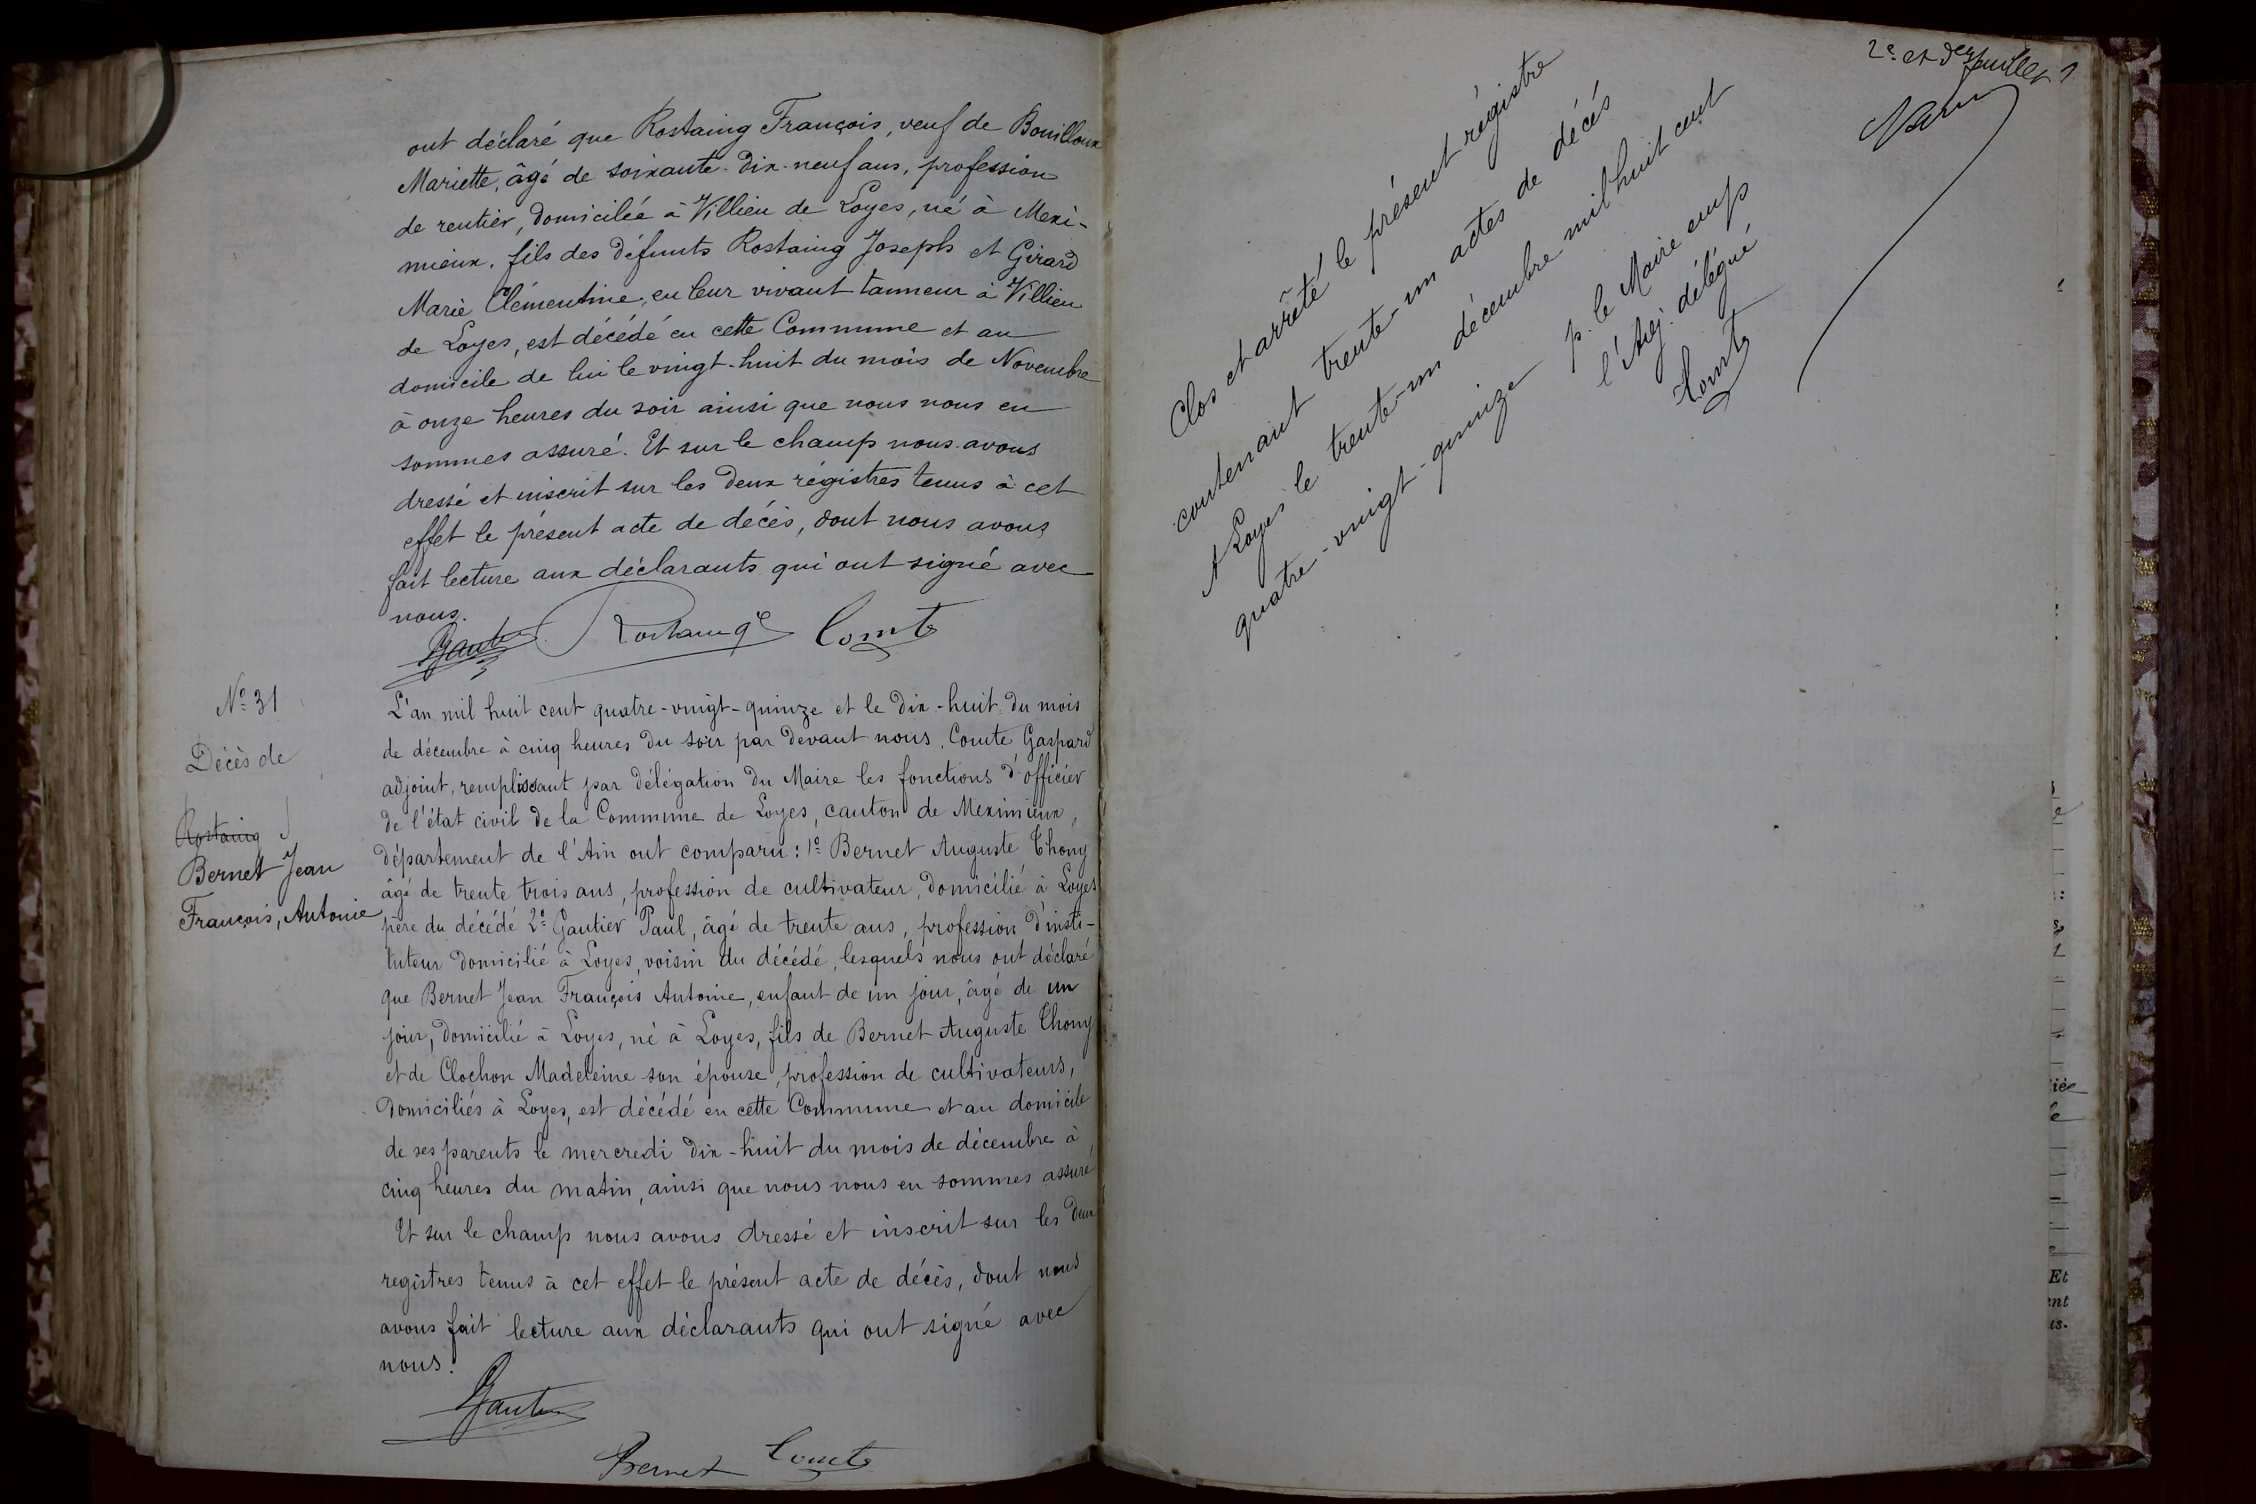 ont déclaré que Rostaing François, veuf de Bouilloux
Mariette, âgé de soixante-dix-neuf ans, profession
de rentier, domiciliée à Villieu de Loyes, né à Mexi-
mieux, fils des défunts Rostaing Joseph et Girard
Marie Clémentine, en leur vivant tanneur à Villieu
de Loyes, est décédé en cette Commune et au
domicile de lui le vingt-huit du mois de Novembre
à onze heures du soir ainsi que nous nous en
sommes assuré. Et sur le champ nous avons
dressé et inscrit sur les deux régistres tenus à cet
effet le présent acte de décès, dont nous avons
fait lecture aux déclarants qui ont signé avec
nous.
Rostaing Comte
N° 31
Décès de
Rostaing
Bernet Jean
François, Antonie
L'an mil huit cent quatre-vingt-quinze et le dix-huit du mois
de décembre à cinq heures du soir par devant nous, Comte Gaspard
adjoint, remplissant par délégation du Maire les fonctions d'officier
de l'état civil de la Commune de Loyes, canton de Meximieux,
département de l'Ain ont comparu : 1° Bernet Auguste Thony
âgé de trente trois ans, profession de cultivateur, domicilié à Loyes
père du décédé 2° Gautier Paul, âgé de trente ans, profession d'insti-
tuteur domicilié à Loyes, voisin du décédé, lesquels nous ont déclaré
que Bernet Jean François Antoine, enfant de un jour, âgé de un
jour, domicilié à Loyes, né à Loyes, fils de Bernet Auguste Thony
et de Clochon Madeleine son épouse, profession de cultivateurs,
domiciliés à Loyes, est décédé en cette Commune et au domicile
de ses parents le mercredi dix-huit du mois de décembre à
cinq heures du matin, ainsi que nous nous en sommes assuré
Et sur le champ nous avons dressé et inscrit sur les deux
registres tenus à cet effet le présent acte de décès, dont nous
avons fait lecture aux déclarants qui ont signé avec
nous.
Bernet Comte
2e et der feuillet
Clos et arrêté le présent régistre
contenant trente-un actes de décés
A Loyes le trente-un décembre mil huit cent
quatre-vingt-quinze
p. le Maire emp
l'Adj. délégué
Comte
iée
Et
ent
is.